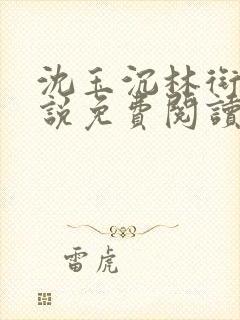 沈玉沉林衍
說免費閱讀
雷虎